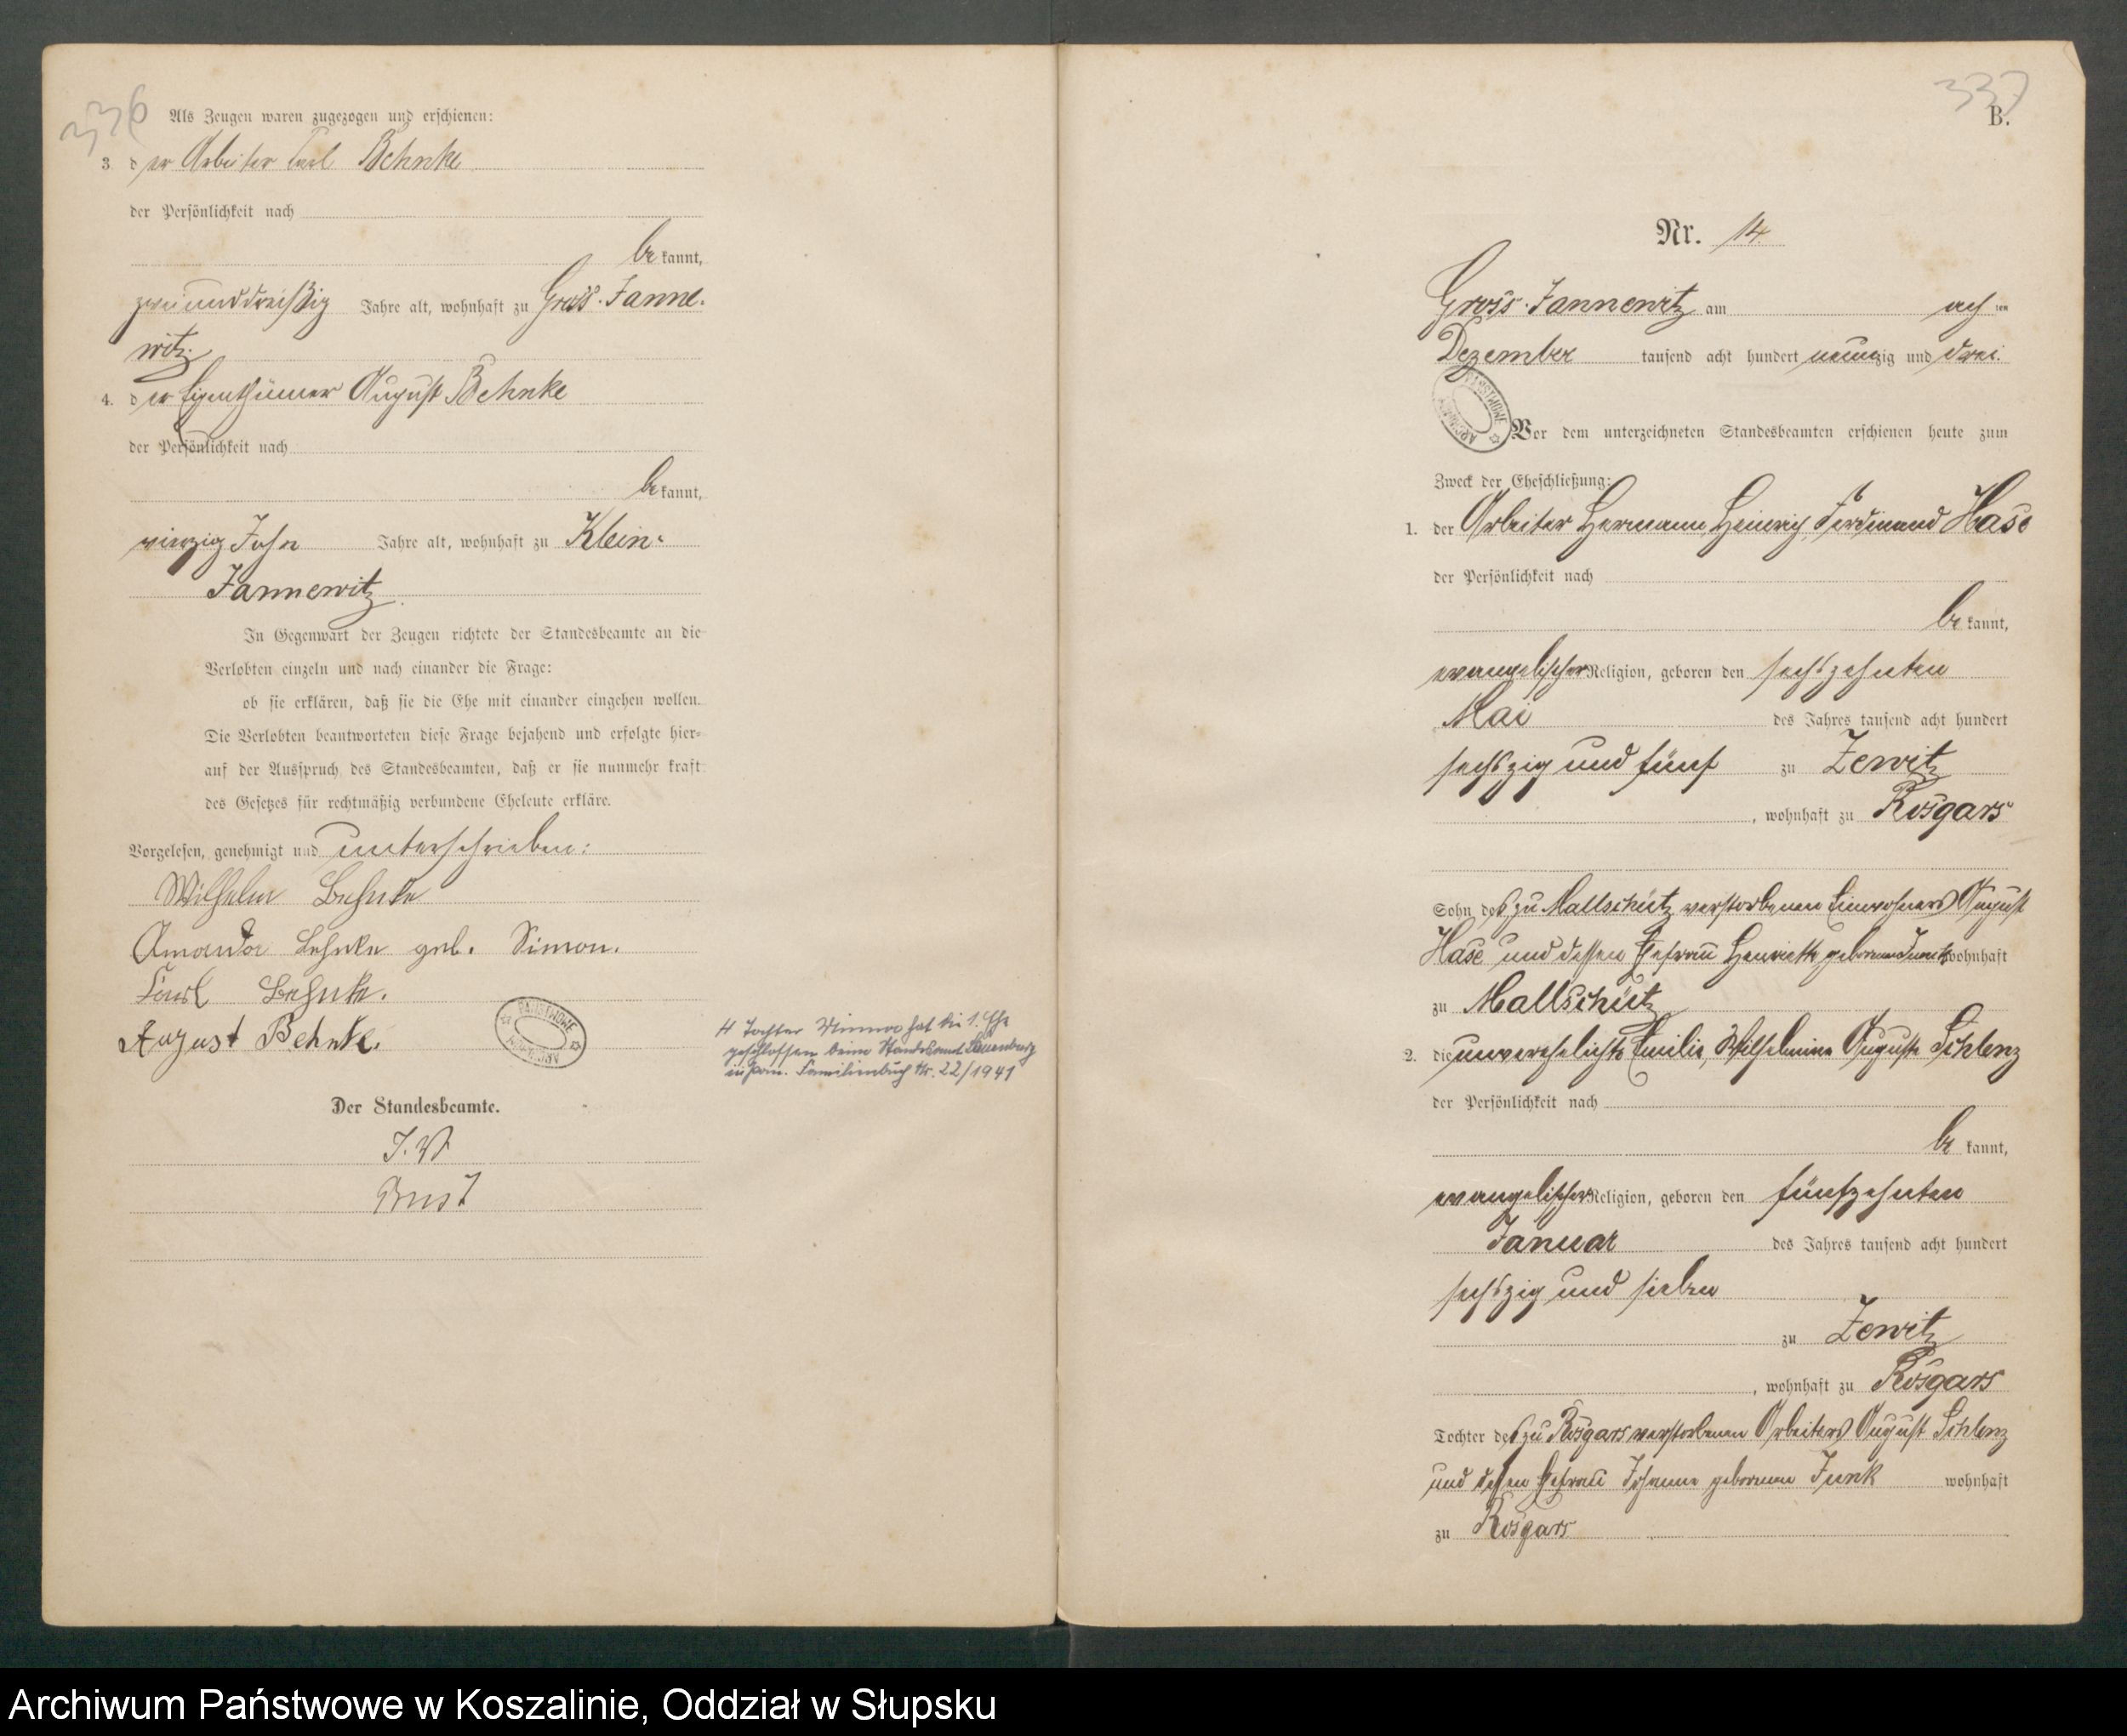 336
Als Zeugen waren zugezogen und erschienen:
3. der Arbeiter Carl Behnke
der Persönlichkeit nach
be kannt,
zweiunddreißig Jahre alt, wohnhaft zu Gross-Janne-
witz
4. der Eigenthümer August Behnke
der Persönlichkeit nach
be kannt,
vierzig Jahre Jahre alt, wohnhaft zu Klein-
Jannewitz
In Gegenwart der Zeugen richtete der Standesbeamte an die
Verlobten einzeln und nach einander die Frage:
ob sie erklären, daß sie die Ehe mit einander eingehen wollen.
Die Verlobten beantworteten diese Frage bejahend und erfolgte hier-
auf der Ausspruch des Standesbeamten, daß er sie nunmehr kraft
des Gesetzes für rechtmäßig verbundene Eheleute erkläre.
Vorgelesen, genehmigt und unterschrieben:
Wilhelm Behnke
Amanda Behnke geb. Simon.
Carl Behnke.
August Behnke.
H Tochter hat die 1. Ehe
geschlossen beim Standesamt Lauenburg
in Pom. Familienbuch Nr. 22/1941
Der Standesbeamte.
J. V.
337
B.
Nr. 14.
Gross-Jannewitz am ach ten
Dezember tausend acht hundert neunzig und drei.
Vor dem unterzeichneten Standesbeamten erschienen heute zum
Zweck der Eheschließung:
1. der Arbeiter Hermann Heinrich Ferdinand Hase
der Persönlichkeit nach
be kannt,
evangelischer Religion, geboren den sechszehnten
Mai des Jahres tausend acht hundert
sechszig und fünf zu Zewitz
, wohnhaft zu Rosgars
Sohn des zu Mallschütz verstorbenen Einwohners August
Hase und dessen Ehefrau Henriette geborenen wohnhaft
zu Mallschütz
2. die unverehelichte Emilie Wilhelmine Auguste Schlenz
der Persönlichkeit nach
be kannt,
evangelischer Religion, geboren den fünfzehnten
Januar des Jahres tausend acht hundert
sechszig und sieben
zu Zewitz
, wohnhaft zu Rosgars
Tochter des zu Rosgars verstorbenen Arbeiters August Schlenz
und dessen Ehefrau Johanne geborenen Junk wohnhaft
zu Rosgars
Archiwum Państwowe w Koszalinie, Oddział w Słupsku